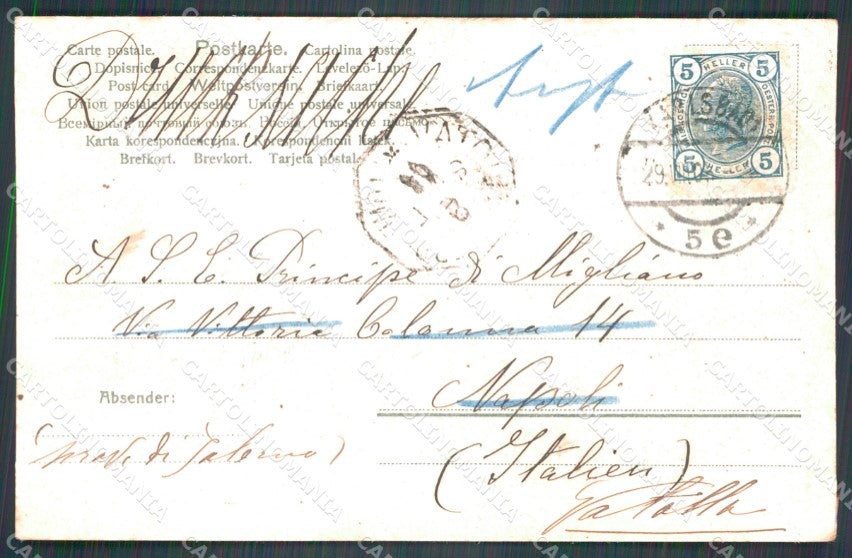 Carte postale. Postkarte. Cartolina postale.
Dopisnice Correspondenzkarte. Levelező-Lap.
Post card. Weltpostverein. Briefkaart.
Union postale universelle. Unione postale universale.
Всемірный почтовый союзъ. Россія. Открытое письмо.
Karta korespondencyjna. Korespondenční lístek.
Brefkort. Brevkort. Tarjeta postal.
5 HELLER 5
5 HELLER 5
29.
* 5e *
A S. E. Principe di Migliano
Via Vittoria Colonna 14
Napoli
(Italien)
Absender:
Vatolla
(prov. di Salerno)
CARTOLINOMANIA